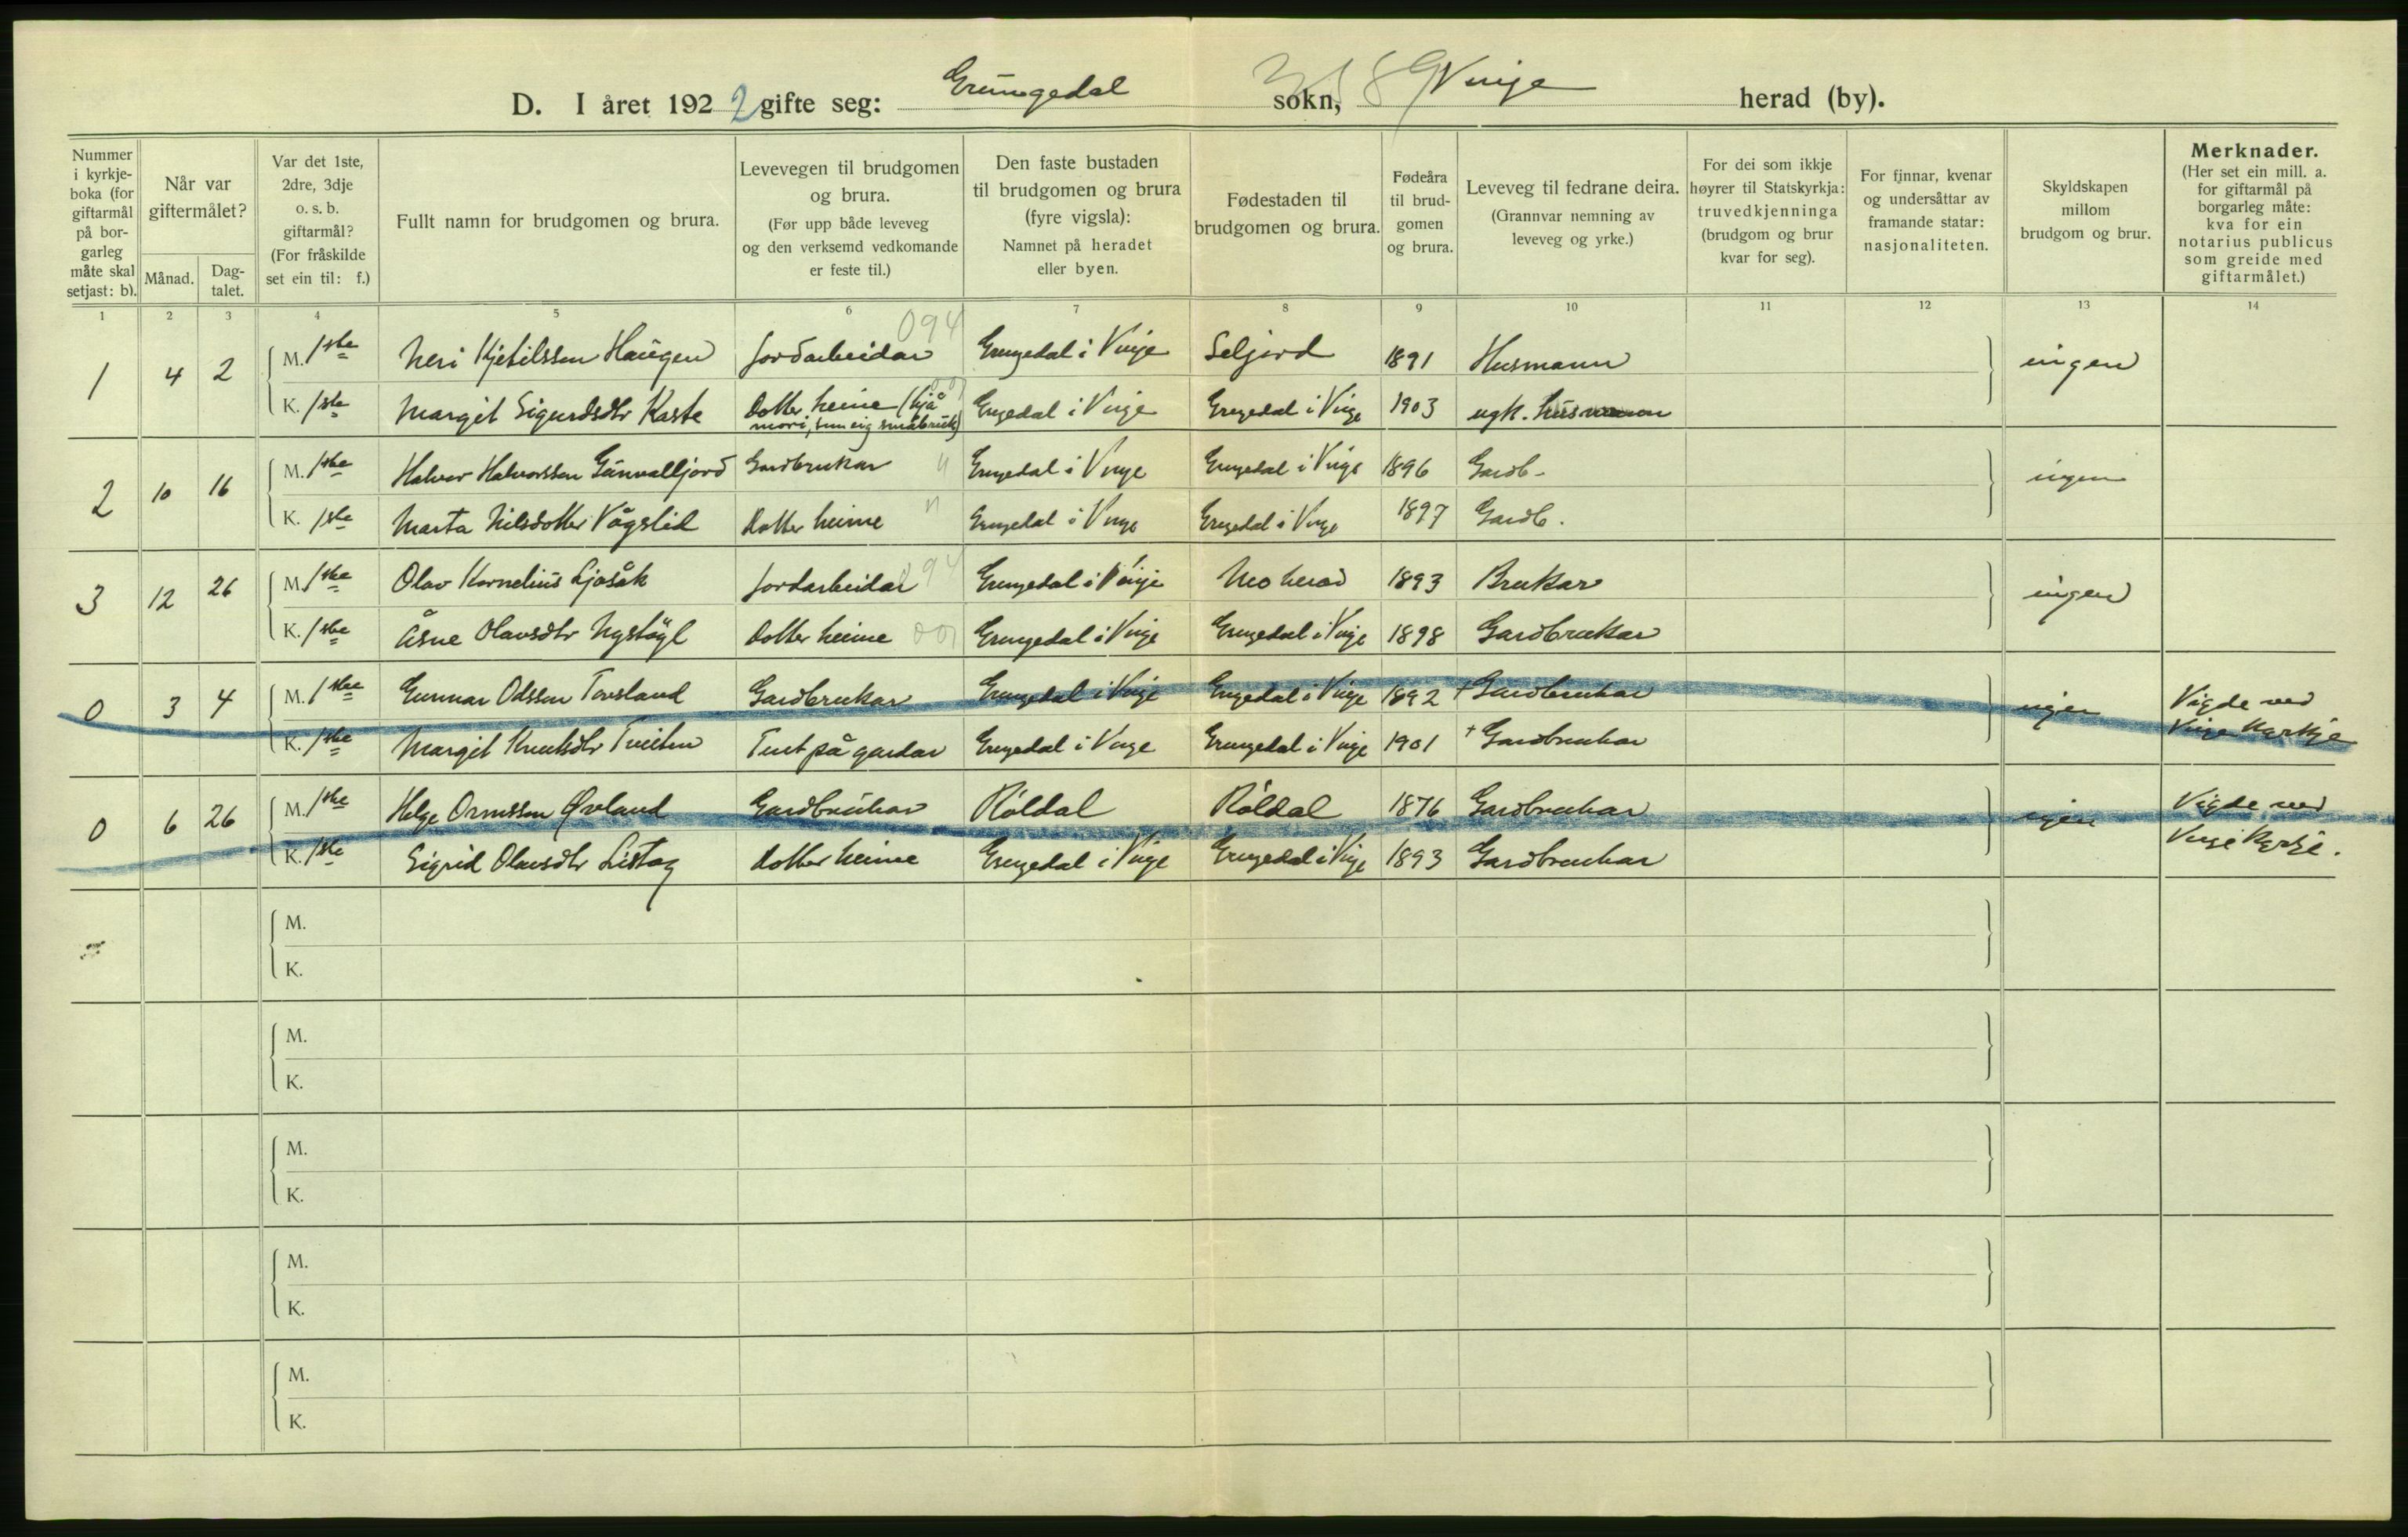 D. I året 1922 gifte seg: Grungedal sokn, Vinje herad (by).
Nummer i kyrkje-boka (for giftarmål på bor-garleg måte skal setjast: b).
Når var giftermålet?
Månad.
Dag-talet.
Var det 1ste, 2dre, 3dje o. s. b. giftarmål? (For fråskilde set ein til: f.)
Fullt namn for brudgomen og brura.
Levevegen til brudgomen og brura. (Før upp både leveveg og den verksemd vedkomande er feste til.)
Den faste bustaden til brudgomen og brura (fyre vigsla): Namnet på heradet eller byen.
Fødestaden til brudgomen og brura.
Fødeåra til brud-gomen og brura.
Leveveg til fedrane deira. (Grannvar nemning av leveveg og yrke.)
For dei som ikkje høyrer til Statskyrkja: truvedkjenninga (brudgom og brur kvar for seg).
For finnar, kvenar og undersåttar av framande statar: nasjonaliteten.
Skyldskapen millom brudgom og brur.
Merknader. (Her set ein mill. a. for giftarmål på borgarleg måte: kva for ein notarius publicus som greide med giftarmålet.)
1 2 3 4 5 6 7 8 9 10 11 12 13 14
094
1 4 2 M. 1ste Neri Kjetilsson Haugen Jordarbeidar Grungedal i Vinje Seljord 1891 Husmann ingen
K. 1ste Margit Sigurdsdtr Kaste Dotter heime (hjå Grungedal i Vinje Grungedal i Vinje 1903 ugk. husmann
mori, sum eig småbruk)
2 10 16 M. 1ste Halvor Halvorsson Gunvalljord Gardbrukar " Grungedal i Vinje Grungedal i Vinje 1896 Gardb. ingen
K. 1ste Marta Nilsdotter Vågslid Dotter heime " Grungedal i Vinje Grungedal i Vinje 1897 Gardb.
3 12 26 M. 1ste Olav Kornelius Ljosåk Jordarbeidar 094 Grungedal i Vinje Mo herad 1893 Brukar ingen
K. 1ste Åsne Olavsdtr Nystøyl Dotter heime 001 Grungedal i Vinje Grungedal i Vinje 1898 Gardbrukar
0 3 4 M. 1ste Gunnar Odsson Torsland Gardbrukar Grungedal i Vinje Grungedal i Vinje 1892 + Gardbrukar ingen Vigde ved
K. 1ste Margit Knutsdtr Tveiten Tent på gardar Grungedal i Vinje Grungedal i Vinje 1901 + Gardbrukar Vinje Kyrkje
0 6 26 M. 1ste Helge Ormsson Øvland Gardbrukar Røldal Røldal 1876 Gardbrukar ingen Vigde ved
K. 1ste Sigrid Olavsdtr Listog Dotter heime Grungedal i Vinje Grungedal i Vinje 1893 Gardbrukar Vinje Kyrkje.
M.
K.
M.
K.
M.
K.
M.
K.
M.
K.